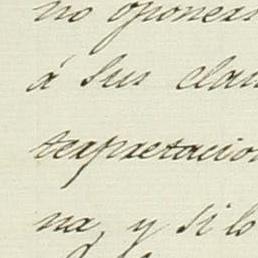 no oponers
á sus clau
terpretacion
na, y si lo